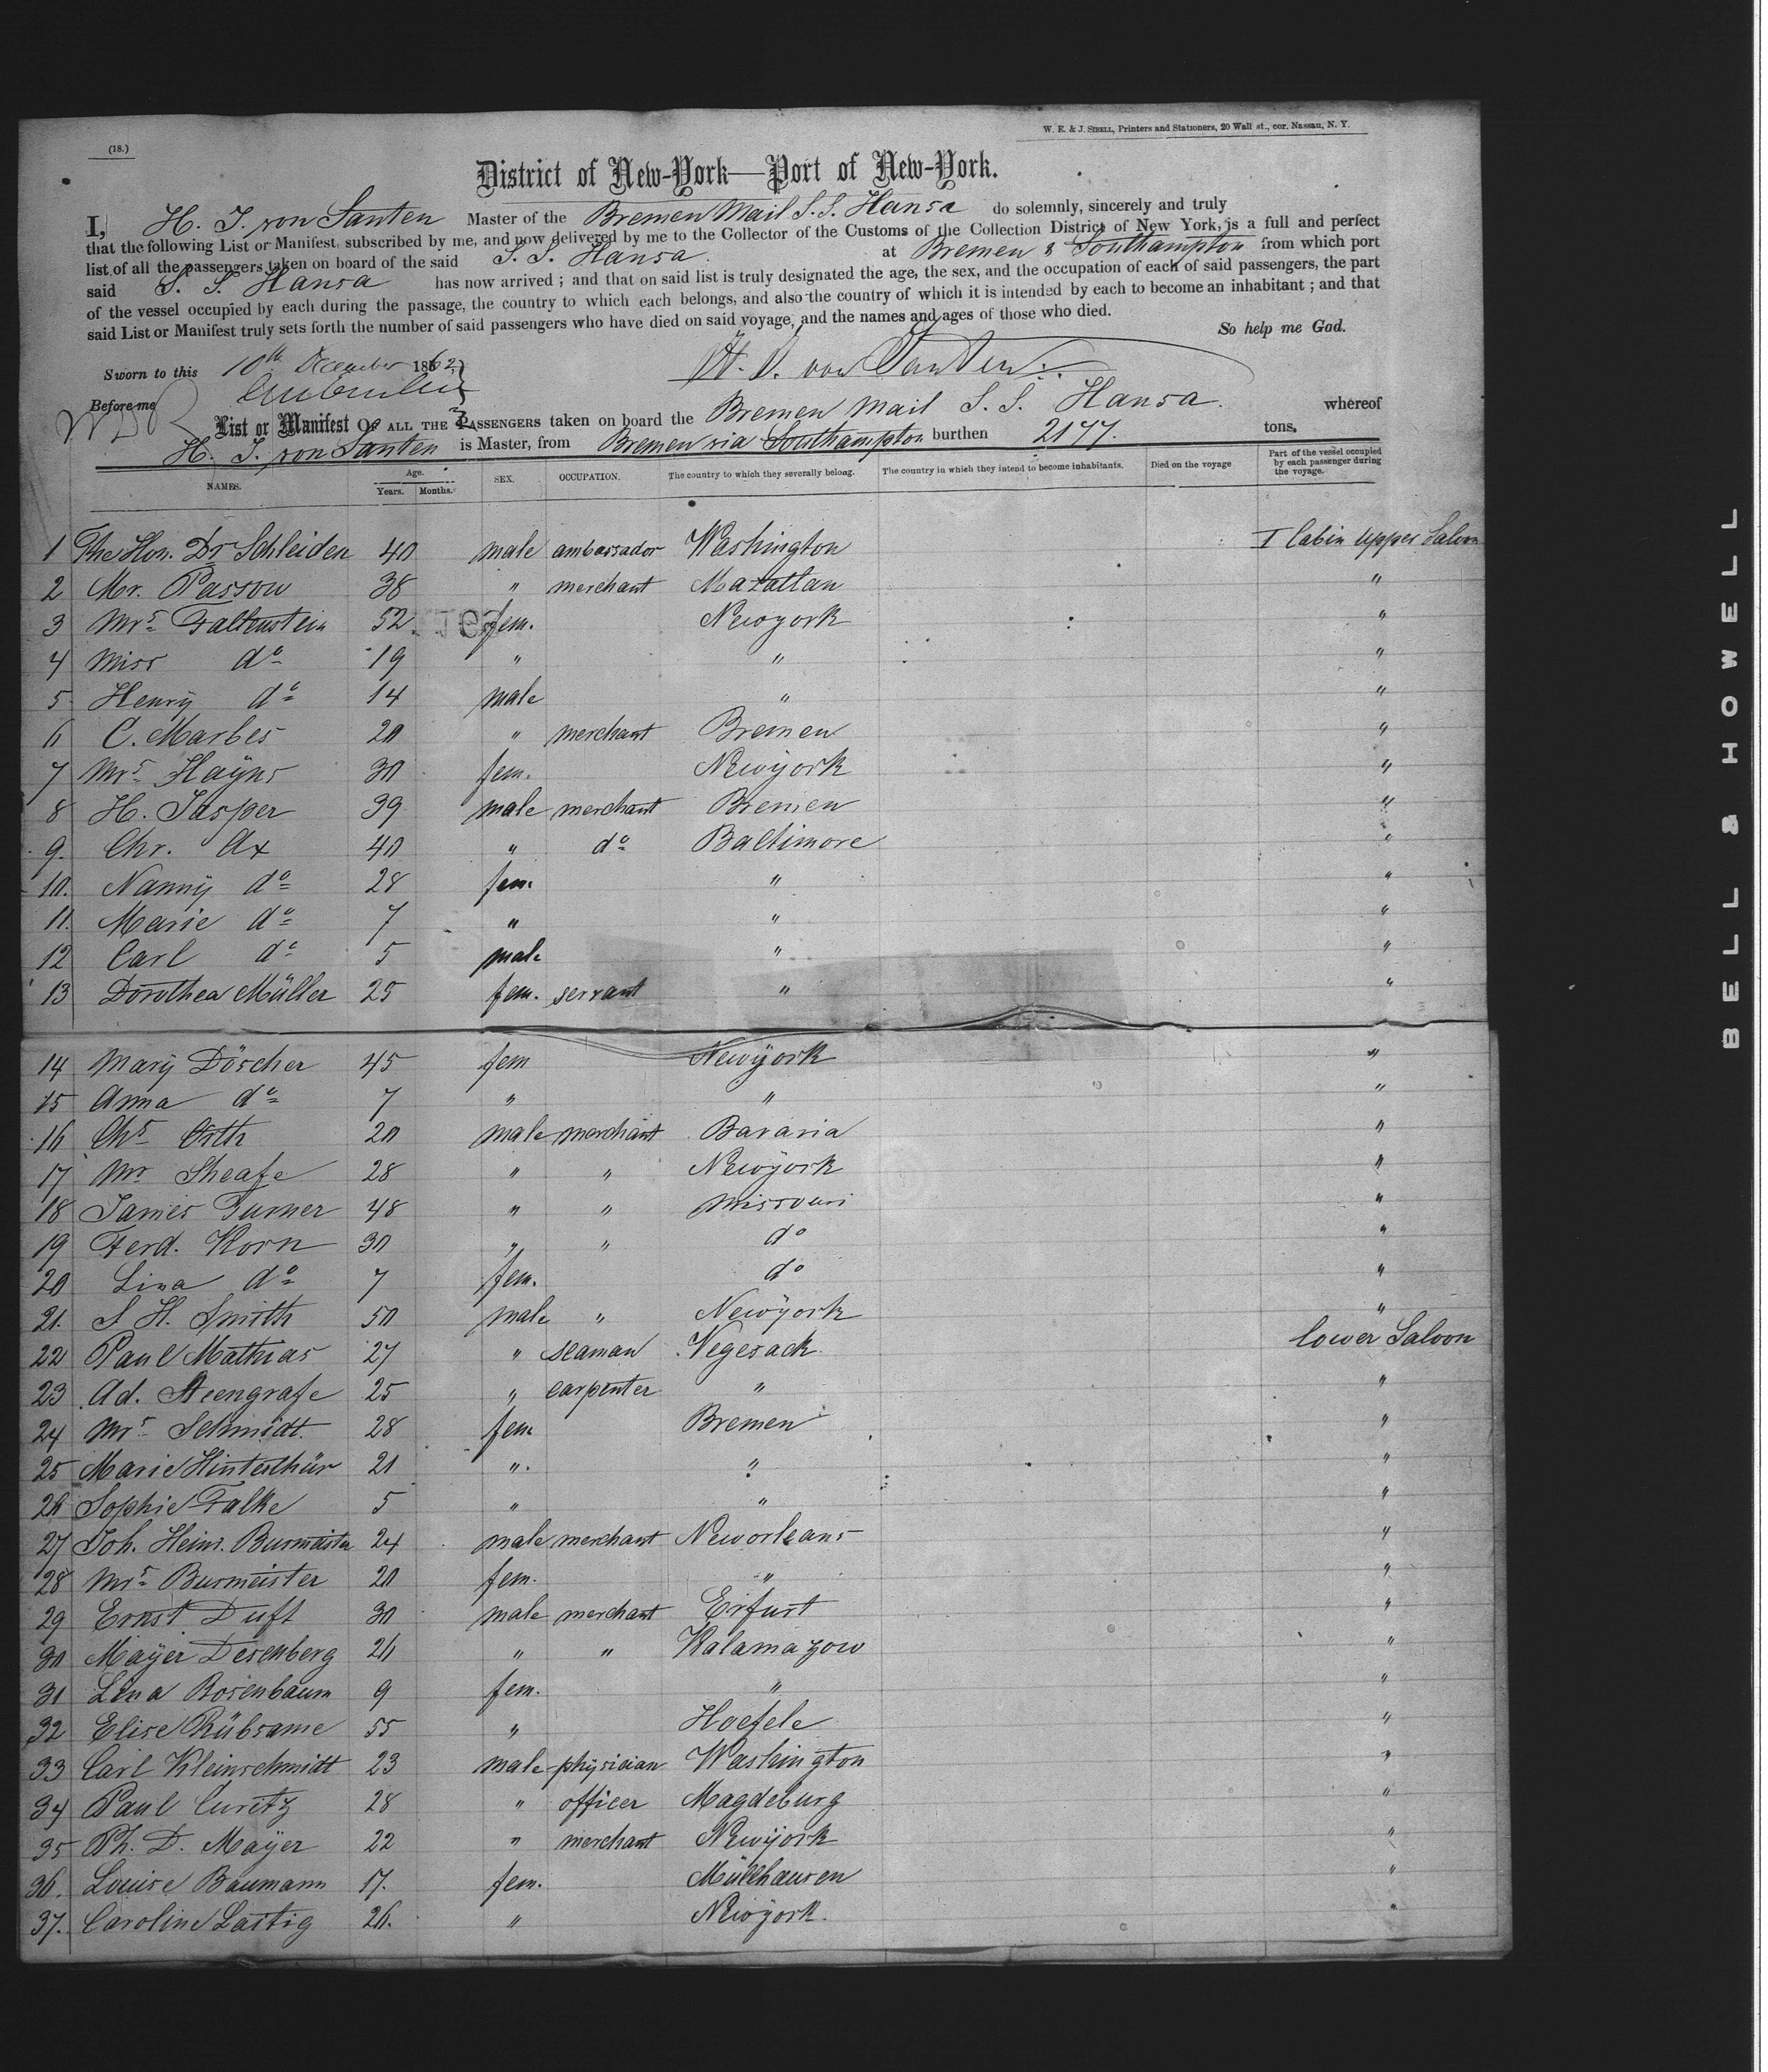 W. E. & J. SIBELL, Printers and Stationers, 20 Wall st., cor. Nassau, N. Y.
(18.)
District of New-York—Port of New-York.
I, H. J. von Santen Master of the Bremen Mail S. S. Hansa do solemnly, sincerely and truly
that the following List or Manifest, subscribed by me, and now delivered by me to the Collector of the Customs of the Collection District of New York, is a full and perfect
list of all the passengers taken on board of the said S. S. Hansa. at Bremen & Southampton from which port
said S. S. Hansa has now arrived; and that on said list is truly designated the age, the sex, and the occupation of each of said passengers, the part
of the vessel occupied by each during the passage, the country to which each belongs, and also the country of which it is intended by each to become an inhabitant; and that
said List or Manifest truly sets forth the number of said passengers who have died on said voyage, and the names and ages of those who died.
So help me God.
Sworn to this 10th December 1862 H. J. von Santen.
Before me
List or Manifest OF ALL THE PASSENGERS taken on board the Bremen Mail S. S. Hansa. whereof
H. J. von Santen is Master, from Bremen via Southampton burthen 2177. tons.
NAMES. Age. Years. Months. SEX. OCCUPATION. The country to which they severally belong. The country in which they intend to become inhabitants. Died on the voyage Part of the vessel occupied by each passenger during the voyage.
1 The Hon. Dr Schleiden 40 male ambassador Washington I Cabin upper Saloon
2 Mr. Passow 38 " merchant Mazatlan "
3 Mrs Faltenstein 52 fem. Newyork "
4 Miss do 19 " " "
5 Henry do 14 male " "
6 C. Marbes 20 " merchant Bremen "
7 Mrs Hayns 30 fem. Newyork "
8 H. Jasper 39 male merchant Bremen "
9. Chr. Ax 40 " do Baltimore "
10. Nanny do 28 fem. " "
11. Marie do 7 " " "
12 Carl do 5 male " "
13 Dorothea Müller 25 fem. servant " "
14 Mary Döscher 45 fem Newyork "
15 Anna do 7 " " "
16 Chs Orth 20 male merchant Bavaria "
17 Mr Sheafe 28 " " Newyork "
18 James Turner 48 " " Missouri "
19 Ferd. Korn 30 " " do "
20 Lina do 7 fem. do "
21. S H. Smith 50 male " Newyork "
22 Paul Mathias 27 " seaman Vegesack. lower Saloon
23 Ad. Steengrafe 25 " carpenter " "
24 Mrs Schmidt. 28 fem Bremen "
25 Marie Hinterthür 21 " " "
26 Sophie Falke 5 " " "
27 Joh. Heinr. Burmeister 24 male merchant Neworleans "
28 Mrs Burmeister 20 fem. " "
29 Ernst Duft 30 male merchant Erfurt "
30 Mayer Desenberg 26 " " Kalamazow "
31 Lina Rosenbaum 9 fem. " "
32 Elise Rübsame 55 " Hoefele "
33 Carl Kleinschmidt 23 male physician Washington "
34 Paul Curetz 28 " officer Magdeburg "
35 Ph. D. Mayer 22 " merchant Newyork "
36. Louise Baumann 17. fem. Müllhausen "
37. Caroline Lastig 26. " Newyork. "
BELL & HOWELL